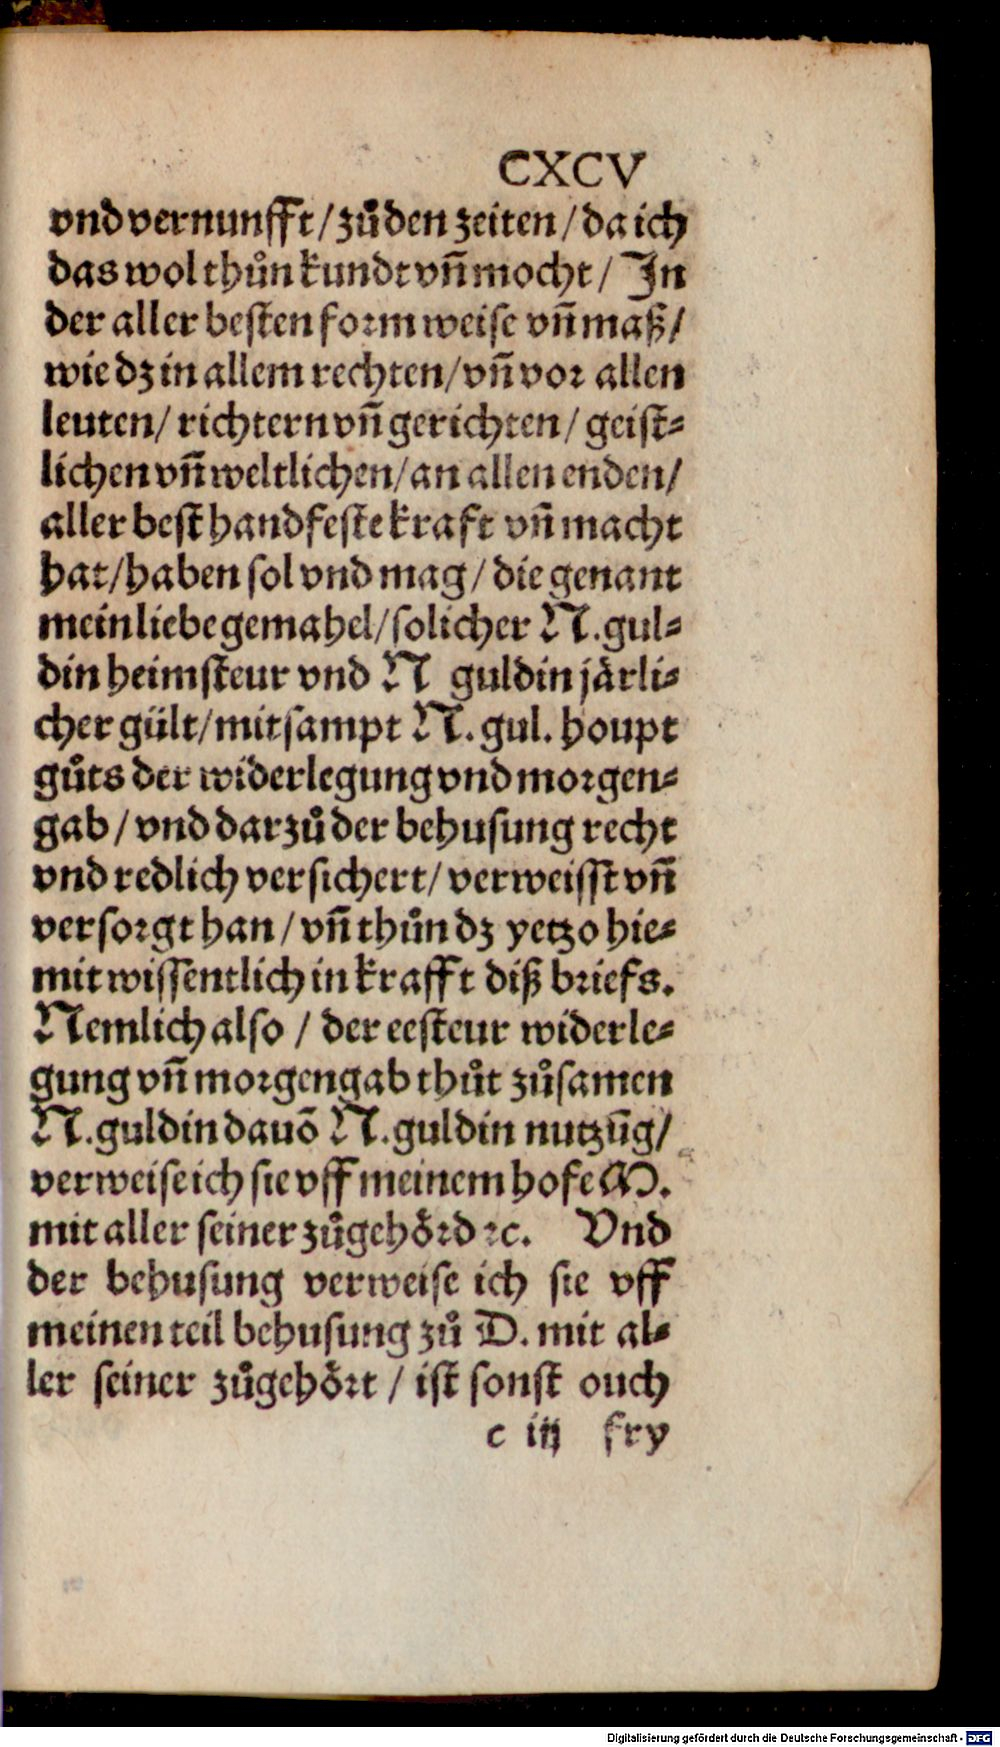 CXCV
vnd vernunfft / zůden zeiten / da ich
das wol thůn kundt vñ mocht / In
der aller besten form weise vñ maß /
wie dz in allem rechten / vñ vor allen
leuten / richtern vñ gerichten / geist⸗
lichen vñ weltlichen / an allen enden /
aller best handfeste kraft vñ macht
hat / haben sol vnd mag / die genant
mein liebe gemahel / solicher N. gul⸗
din heimsteur vnd N guldin järli⸗
cher gült / mitsampt N. gul. houpt
gůts der widerlegung vnd morgen⸗
gab / vnd darzů der behusung recht
vnd redlich versichert / verweisst vñ
versorgt han / vñ thůn dz yetzo hie⸗
mit wissentlich in krafft diß briefs.
Nemlich also / der eesteur widerle⸗
gung vñ morgengab thůt zůsamen
N. guldin dauõ N. guldin nutzũg /
verweise ich sie vff meinem hofe M.
mit aller seiner zůgehörd ⁊c. Vnd
der behusung verweise ich sie vff
meinen teil behusung zů D. mit al⸗
ler seiner zůgehört / ist sonst ouch
c iij fry
Digitalisierung gefördert durch die Deutsche Forschungsgemeinschaft - DFG